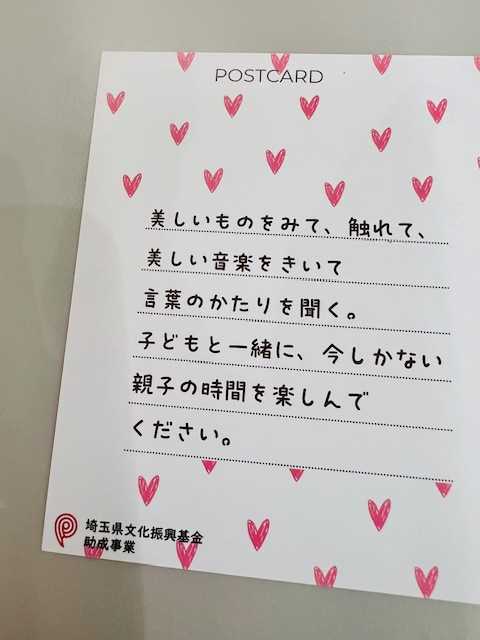 POSTCARD
美しいものをみて、触れて、
美しい音楽をきいて
言葉のかたりを聞く。
子どもと一緒に、今しかない
親子の時間を楽しんで
ください。
埼玉県文化振興基金
助成事業